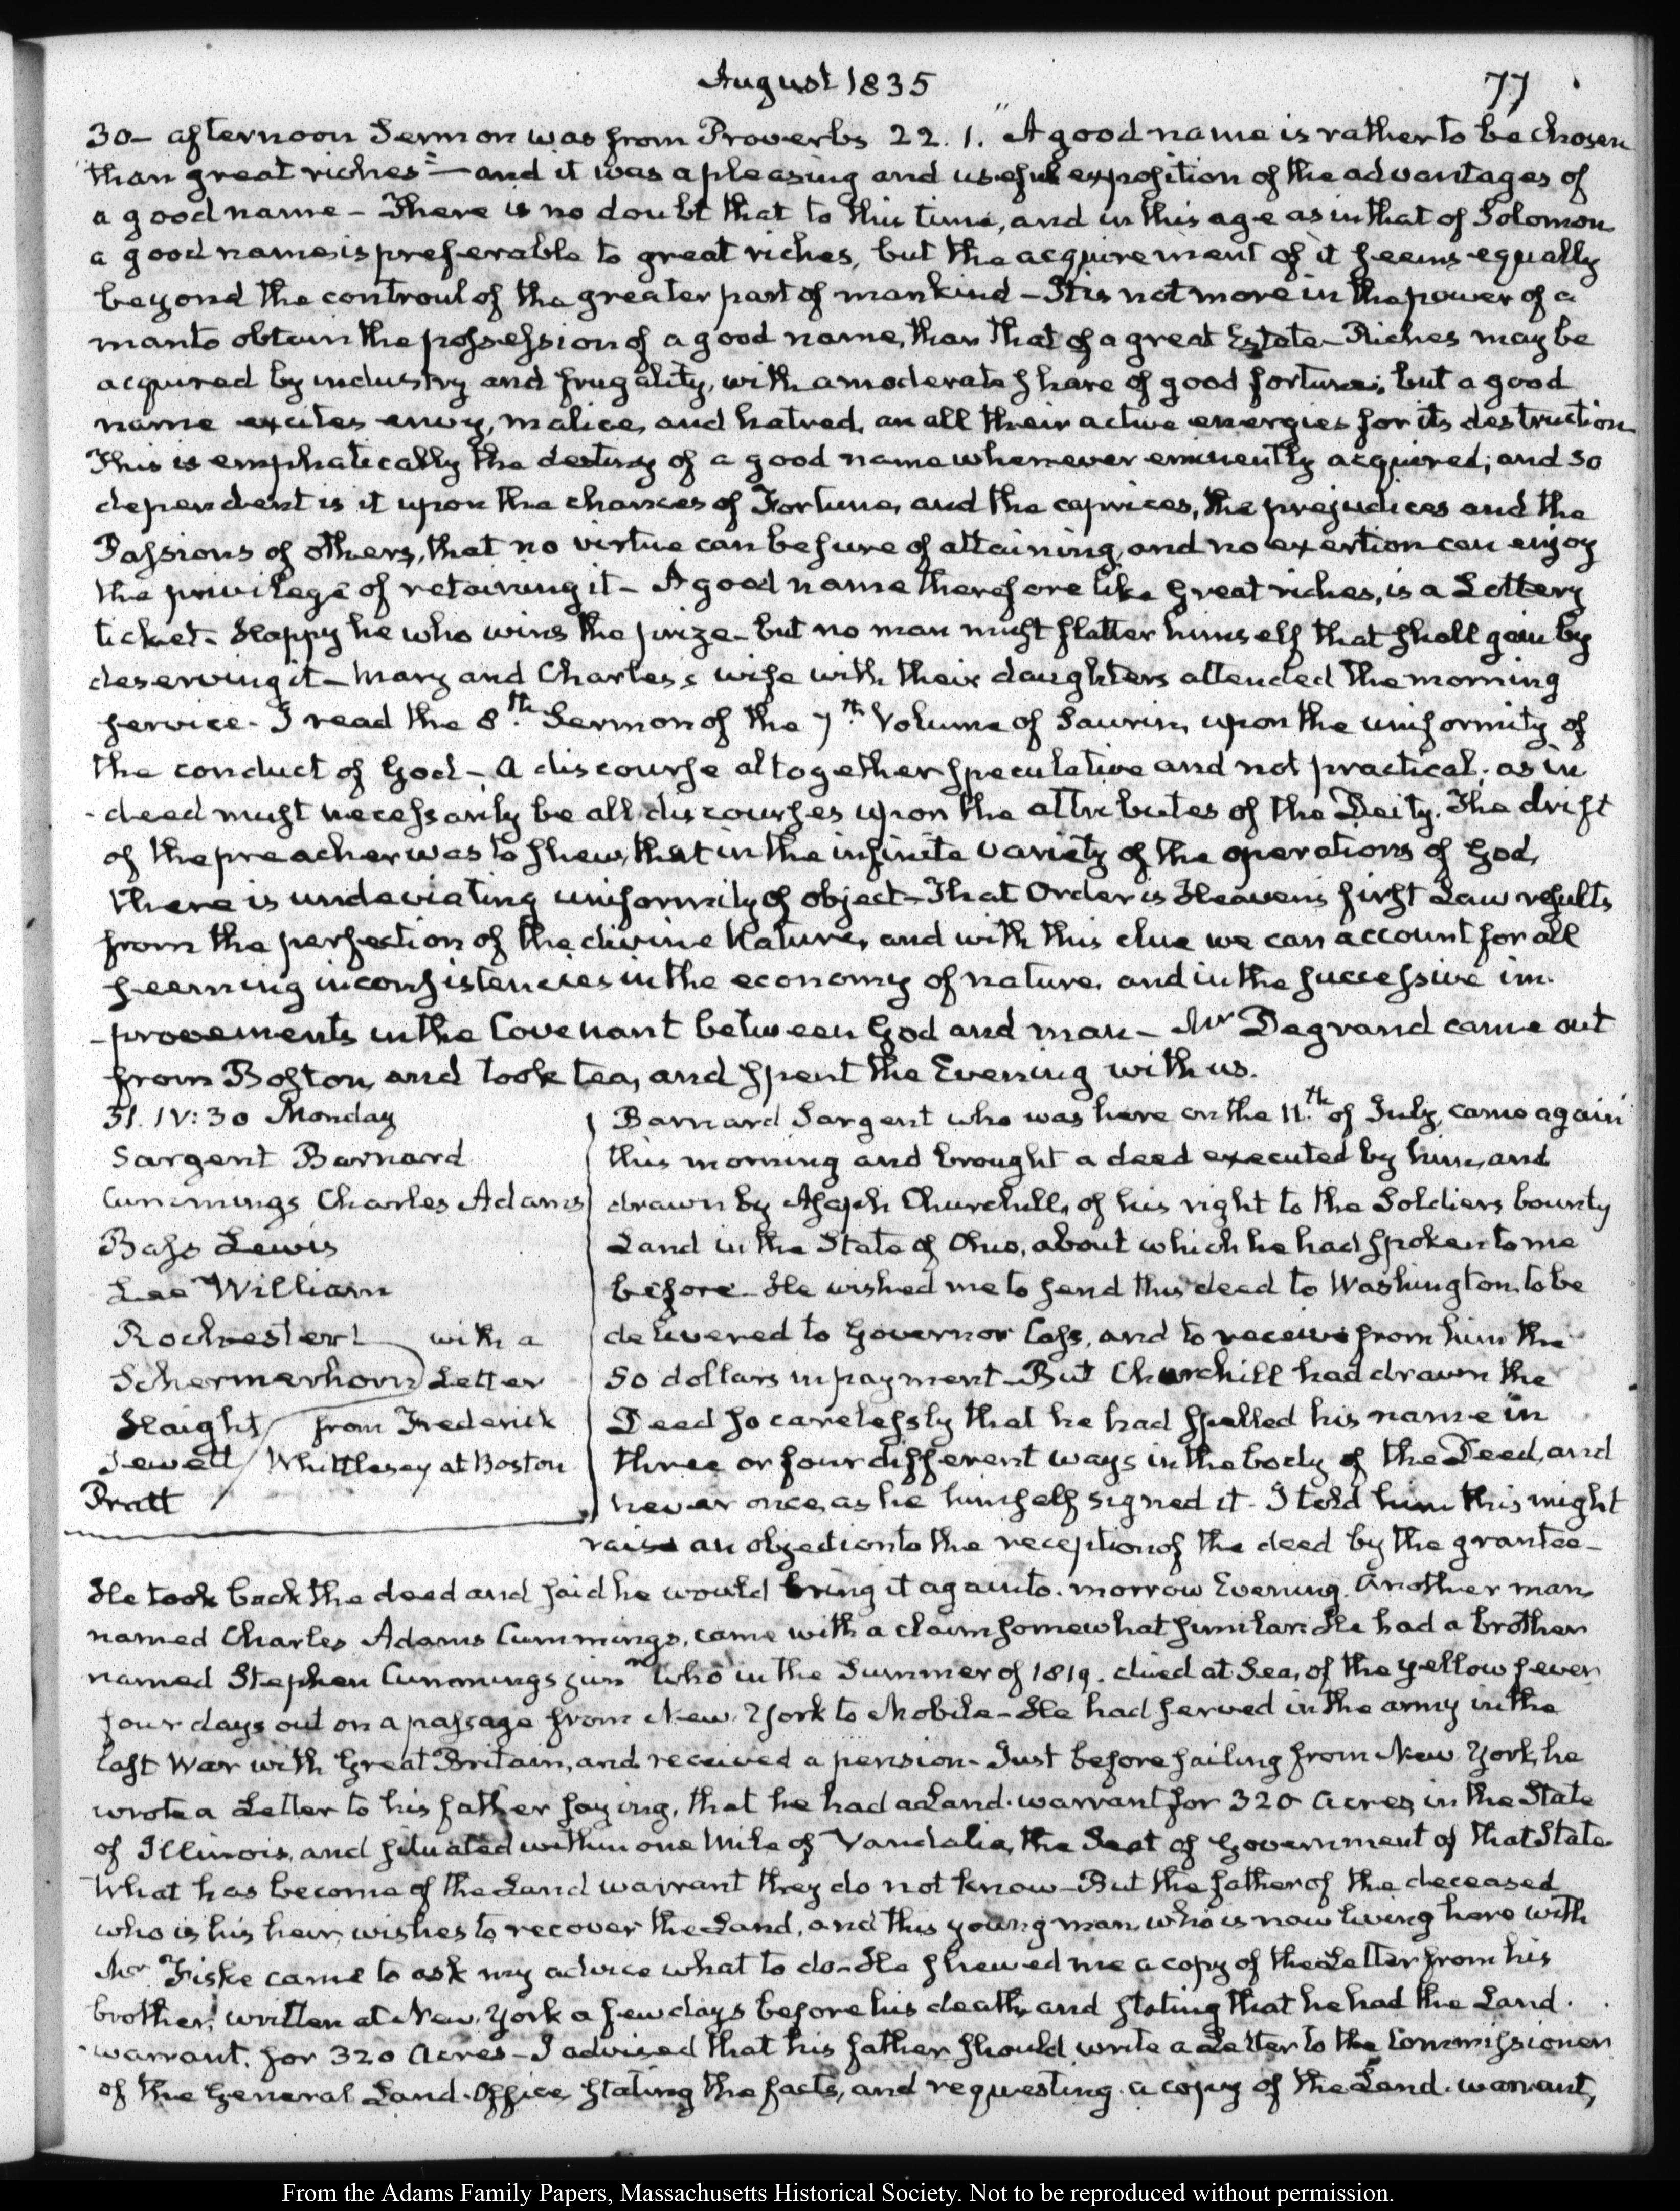 August 1835
77
30– afternoon Sermon was from Proverbs 22. 1. "A good name is rather to be chosen
than great riches"—and it was a pleasing and useful exposition of the advantages of
a good name – There is no doubt that to this time, and in this age as in that of Solomon
a good name is preferable to great riches, but the acquirement of it seems equally
beyond the controul of the greater part of mankind – It is not more in the power of a
man to obtain the possession of a good name, than that of a great Estate – Riches may be
acquired by industry and frugality, with a moderate share of good fortune; but a good
name excites envy, malice, and hatred, an all their active energies for its destruction
This is emphatically the destiny of a good name whenever eminently acquired; and so
dependent is it upon the chances of Fortune, and the caprices, the prejudices and the
Passions of others, that no virtue can be sure of attaining, and no exertion can enjoy
the privilege of retaining it – A good name therefore like great riches, is a Lottery
ticket – Happy he who wins the prize – but no man must flatter himself that shall gain by
deserving it – Mary and Charles's wife with their daughters attended the morning
service – I read the 8.th Sermon of the 7.th Volume of Saurin, upon the uniformity of
the conduct of God – A discourse altogether speculative and not practical. as in
-deed must necessarily be all discourses upon the attributes of the Deity. The drift
of the preacher was to shew, that in the infinite variety of the operations of God,
there is undeviating uniformity of object – That Order is Heaven's first Law results
from the perfection of the divine Nature, and with this clue we can account for all
seeming inconsistencies in the economy of nature, and in the successive im-
-provements in the Covenant between God and man – Mr Degrand came out
from Boston, and took tea, and spent the Evening with us.
31. IV:30 Monday
Sargent Barnard
Cummings Charles Adams
Bass Lewis
Lee William
Rochester with a
Schermerhorn Letter
Haight from Frederick
Jewett Whittlesey at Boston
Pratt
Barnard Sargent who was here on the 11.th of July, came again
this morning and brought a deed executed by him, and
drawn by Asaph Churchill, of his right to the Soldiers bounty
Land in the State of Ohio, about which he had spoken to me
before – He wished me to send this deed to Washington to be
delivered to Governor Cass, and to receive from him the
50 dollars in payment – But Churchill had drawn the
Deed so carelessly that he had spelled his name in
three or four different ways in the body of the Deed, and
never once, as he himself signed it – I told him this might
raise an objection to the reception of the deed by the grantee –
He took back the deed and said he would bring it again to-morrow Evening. Another man
named Charles Adams Cummings, came with a claim somewhat similar. He had a brother
named Stephen Cummings junr who in the Summer of 1819. died at Sea, of the yellow fever
four days out on a passage from New-York to Mobile – He had served in the army in the
last War with Great Britain, and received a pension – Just before sailing from New York, he
wrote a Letter to his father saying, that he had a Land-warrant for 320 Acres in the State
of Illinois, and situated within one Mile of Vandalia, the Seat of Government of that State.
What has become of the Land warrant they do not know – But the father of the deceased
who is his heir, wishes to recover the Land, and this young man, who is now living here with
Mr Fiske came to ask my advice what to do – He shewed me a copy of the Letter from his
brother, written at New-York a few days before his death, and stating that he had the Land-
-warrant, for 320 Acres – I advised that his father should write a Letter to the Commissioner
of the General Land-Office, stating the facts, and requesting a copy of the Land-warrant,
From the Adams Family Papers, Massachusetts Historical Society. Not to be reproduced without permission.